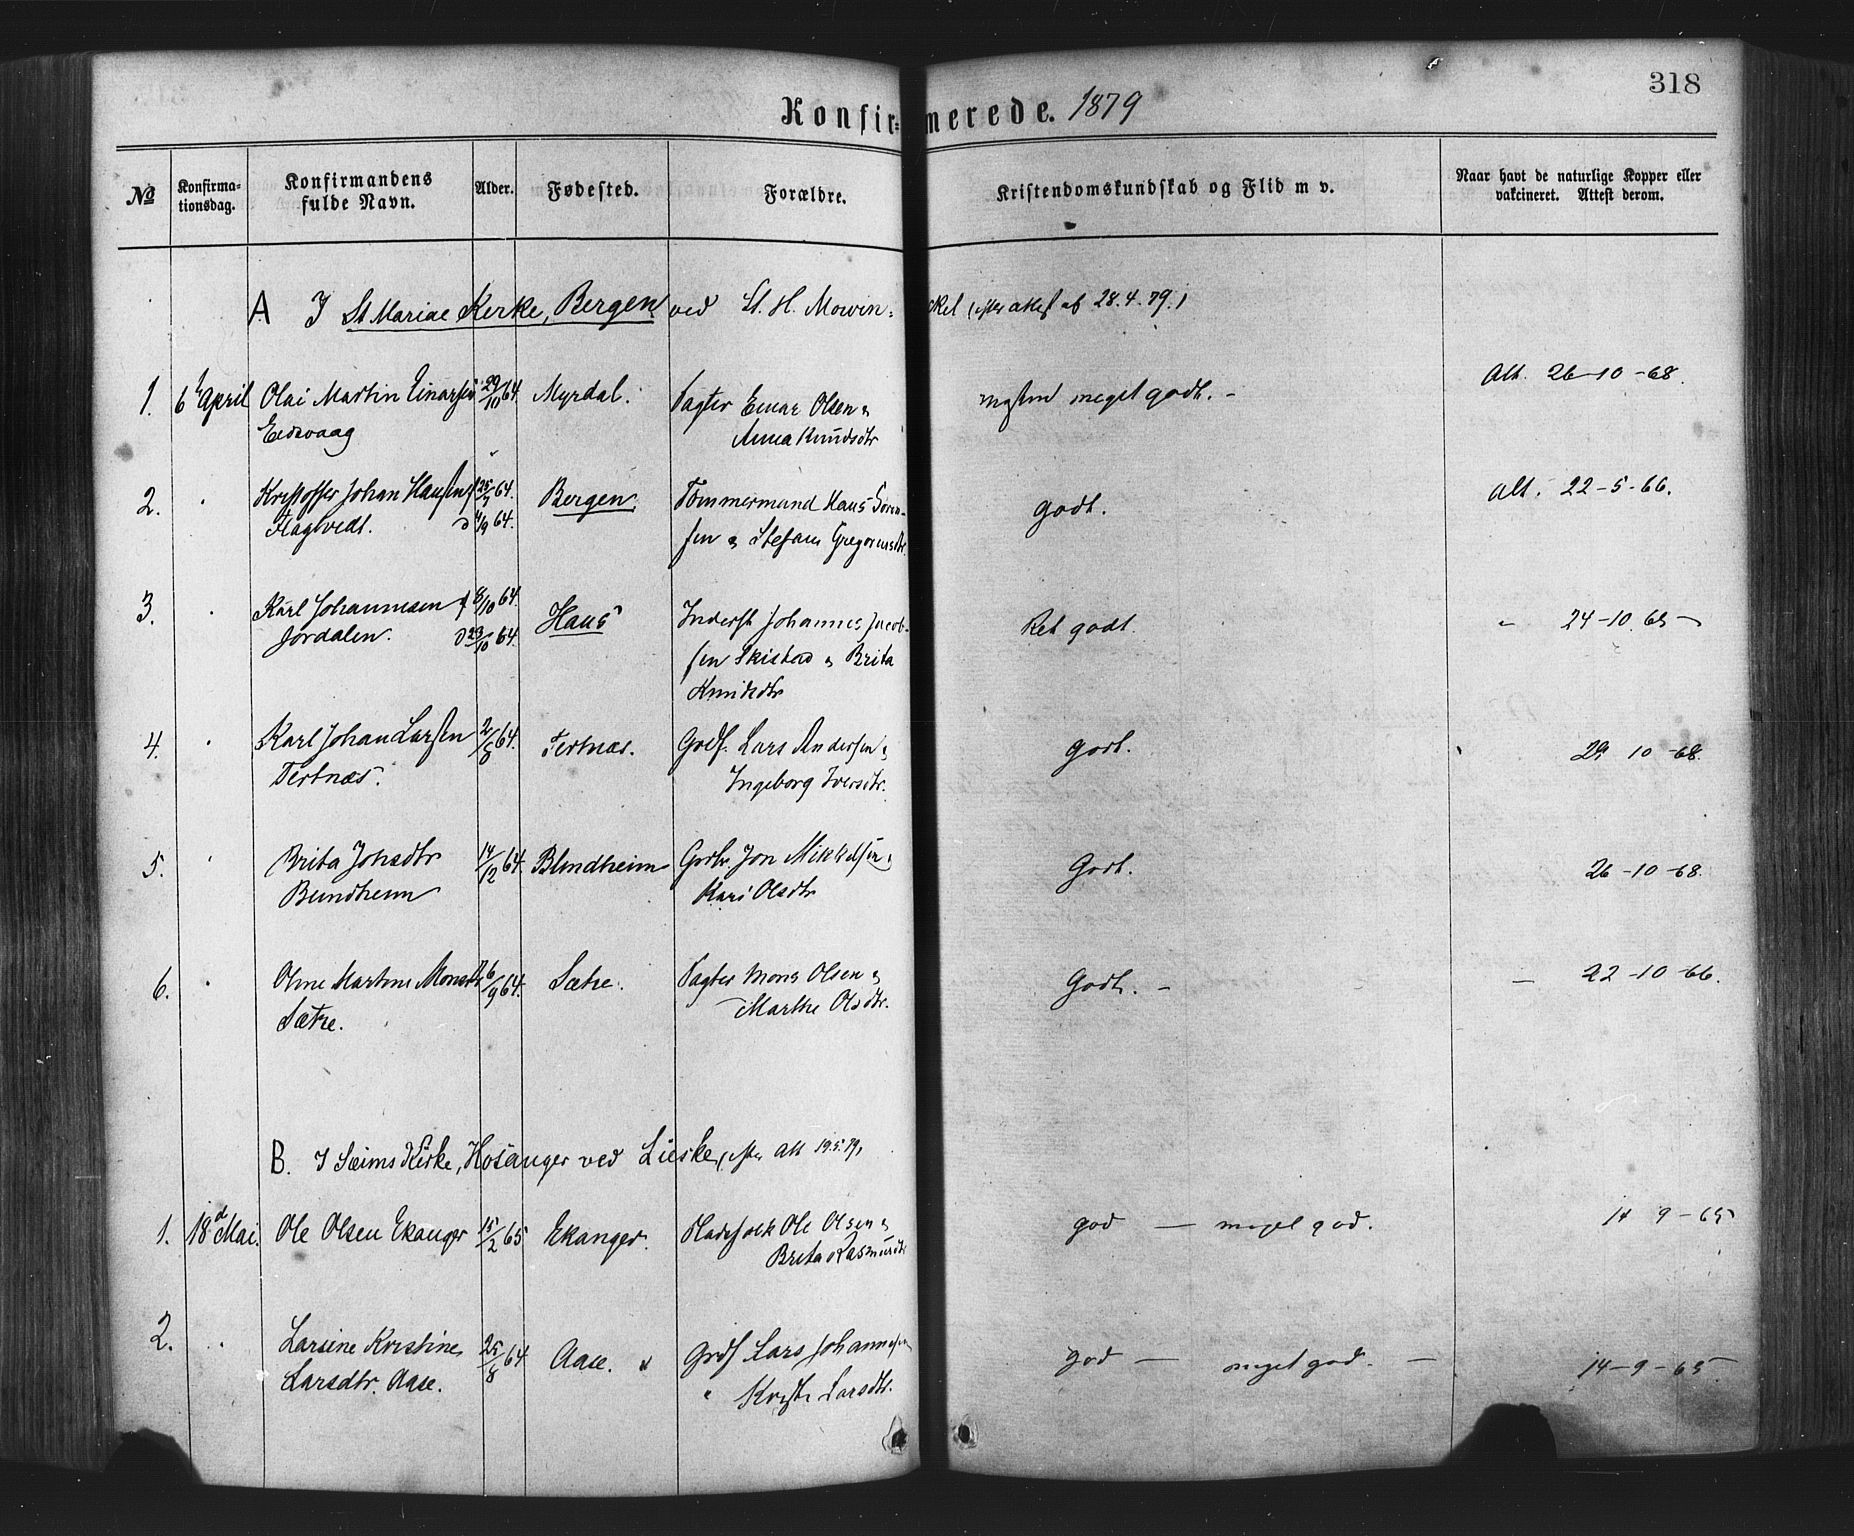 318
Konfirmerede. 1879
No
Konfirma-
tionsdag.
Konfirmandens
fulde Navn.
Alder.
Fødested.
Forældre.
Kristendomskundskab og Flid m v.
Naar havt de naturlige Kopper eller
vakcineret. Attest derom.
A I St Mariae Kerke, Bergen ved St. H. Mowin- ckel (efter attest af 28.4.79.)
1. 6 April Olai Martin Einarsen 29/10 64. Myrdal. Einar Olsen & meget godt. - Att. 26-10-68.
Eidsvaag Anna Knudsdtr
2. Kristoffer Johan Hansen f 25/7 64. Bergen. Tømmermand Hans Søren- godt. Att. 22-5-66.
Flagtvedt. D 4/9 64. sen & Stefani Gregoriusdtr
3. Karl Johannesen f 8/10 64. Haus Inderst Johannes Jacob- Ret godt. " 24-10 65 -
Jordalen. D 23/10 64. sen Skistad & Brita
Knudsdtr
4. Karl Johan Larsen 2/8 64. Tertnæs. Grdf. Lars Andersen & godt. 29 10 -68.
Tertnæs. Ingeborg Iversdtr.
5. Brita Johsdtr 14/12 64. Blindheim Jon Mikkelsen & Godt. 26-10-68.
Kari Olsdtr
6. Oline Martine Monsdtr 26/9 64. Sætre. Mons Olsen & Godt. - - 22-10-66.
Sætre. Marthe Olsdtr.
B. I Seims Kirke, Hosanger ved Lieske, (efter Att 19.5.79)
1. 18d Mai. Ole Olsen Ekanger 15/2 65 Ekanger. Ole Olsen & god - meget god. 14 9-65
Brita Rasmusdtr
2. Larsine Kristine 25/8 64 Aase. Grdf Lars Johannesen god - meget god. - 14-9-65
Larsdtr. Aase. " Larsdtr.